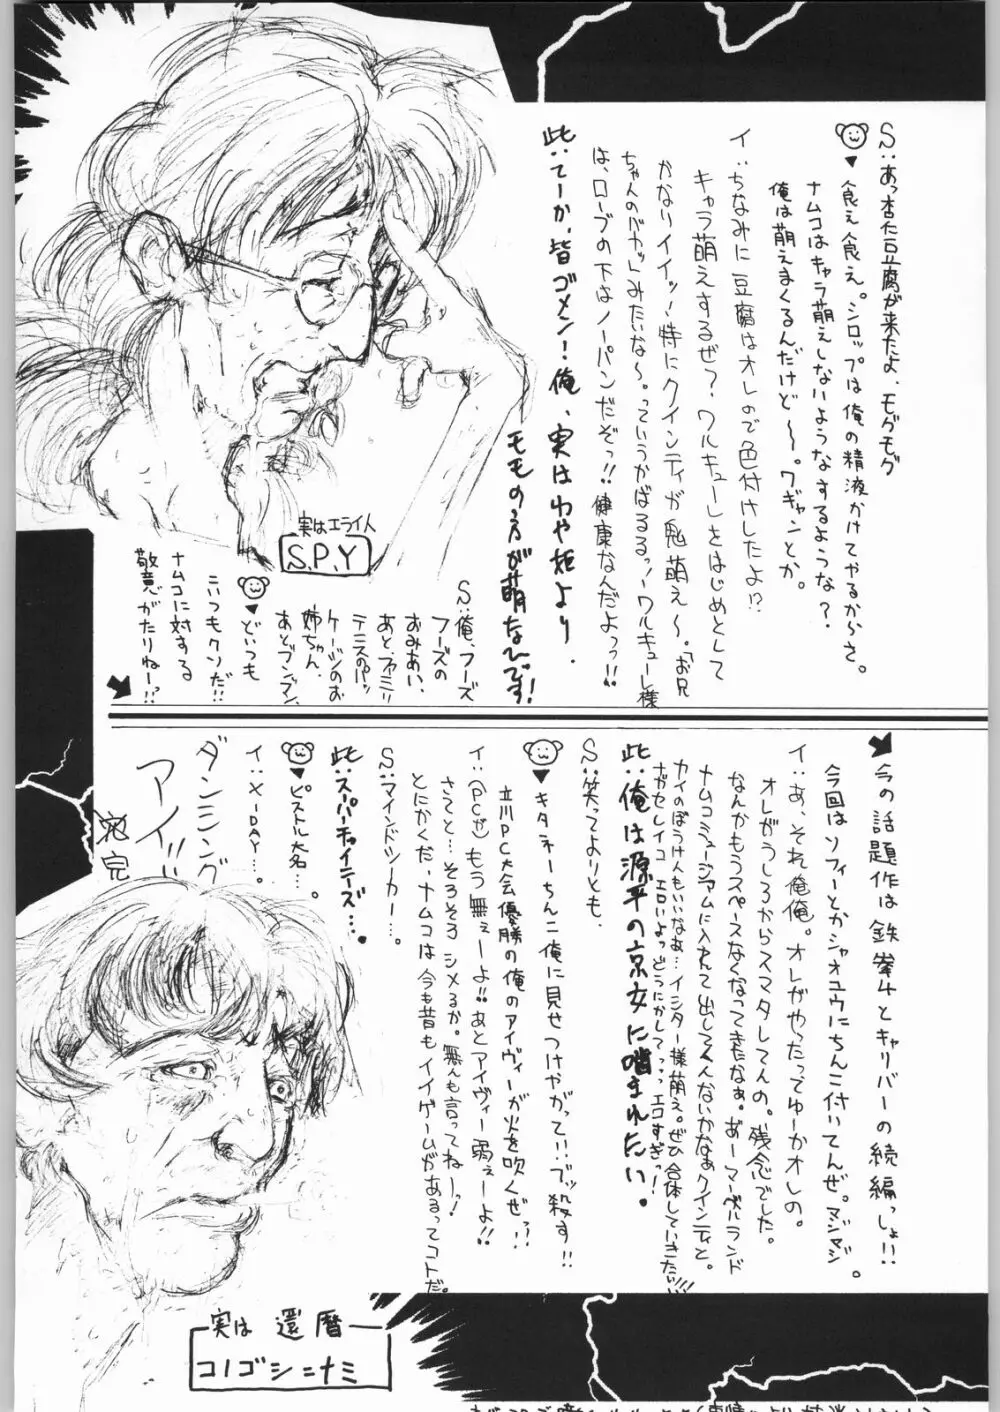 S:あっ杏仁豆腐が来たよ、モグモグ
▼食え食え。シロップは俺の精液かけてやるからさ。
ナムコはキャラ萌えしないようなするような?
俺は萌えまくるんだけど〜。ワギャンとか。
イ:ちなみに豆腐はオレので色付けしたよ!?
キャラ萌えするぜ?ワルキューレをはじめとして
かなりイイッ!特にクインティが鬼萌え〜。「お兄
ちゃんのバカッ」みたいな〜。っていうかばるるッ!ワルキューレ様
は、ローブの下はノーパンだぞっ!!健康なんだよっっ!!
此:てーか、皆ゴメン!俺、実はわや姫より
モモの方が萌なんです!
S:俺、フーズ
フーズの
おみあい、
あと、ファミリー
テニスのパッ
ケージのお
姉ちゃん、
あとブンブン、
▼どいつも
こいつもクソだ!!
ナムコに対する
敬意がたりねー!?
実はエライ人
S.P.Y
今の話題作は鉄拳4とキャリバーの続編っしょ!!
今回はソフィーとかシャオユウにちんこ付いてんぜ。マジマジ。
イ:あ、それ俺俺。オレがやったってゆーかオレの。
オレがうしろからスマタしてんの。残念でした。
なんかもうスペースなくなってきたなぁ。あーマーベルランド
ナムコミュージアムに入れて出してくんないかなぁクインティと。
カイのぼうけんもいいなぁ…イシター様萌え。ぜひ合体していきたい!!!
ナガセレイコエロいよっどうにかしてってっエロすぎっ!
此:俺は源平の京女に噛まれたい。
S:笑ってよりとも、
▼キタネーちんこ俺に見せつけやがってい…ブッ殺す!!
立川PC大会優勝の俺のアイヴィーが火を吹くぜっ?!
イ:(PCが)もう無えーよ!!あとアイヴィー弱えーよ!!
さてと…そろそろシメるか。無ん言ってねーっ!
とにかくだ、ナムコは今も昔もイイゲームがあるってコトだ。
S:マインドシーカー…。
此:スーパーチャイニーズ…。
▼ピストル大名…。
イ:X-DAY…。
ダンシング
アイ!!
発売
実は 還暦
コノゴシニナミ